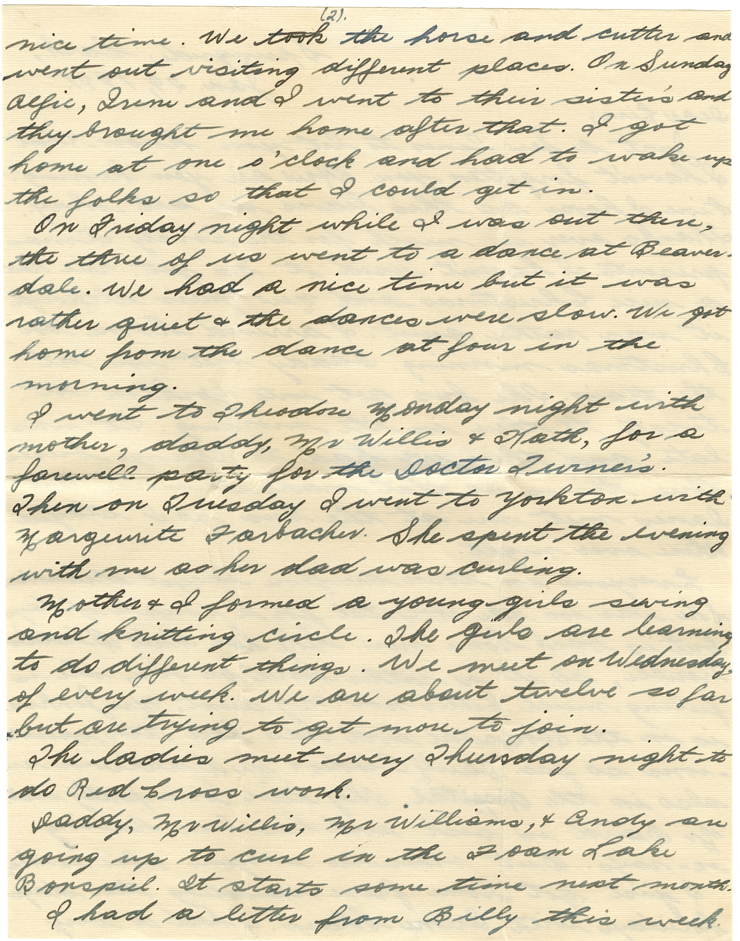 (2).
nice time. We took the horse and cutter and
went out visiting different places. On Sunday
Alfie, Irene and I went to their sister's and
they brought me home after that. I got
home at one o'clock and had to wake up
the folks so that I could get in.
On Friday night while I was out there,
the three of us went to a dance at Beaver-
dale. We had a nice time but it was
rather quiet & the dances were slow. We got
home from the dance at four in the
morning.
I went to Theodore Monday night with
mother, daddy, Mr Willis & Kath, for a
farewell party for the Doctor Turner's.
Then on Tuesday I went to Yorkton with
Marguerite Farbacher. She spent the evening
with me as her dad was curling.
Mother & I formed a young girls sewing
and knitting circle. The girls are learning
to do different things. We meet on Wednesday,
of every week. We are about twelve so far
but are trying to get more to join.
The ladies meet every Thursday night to
do Red Cross work.
Daddy, Mr Willis, Mr Williams, & Andy are
going up to curl in the Foam Lake
Bonspiel. It starts some time next month.
I had a letter from Billy this week.